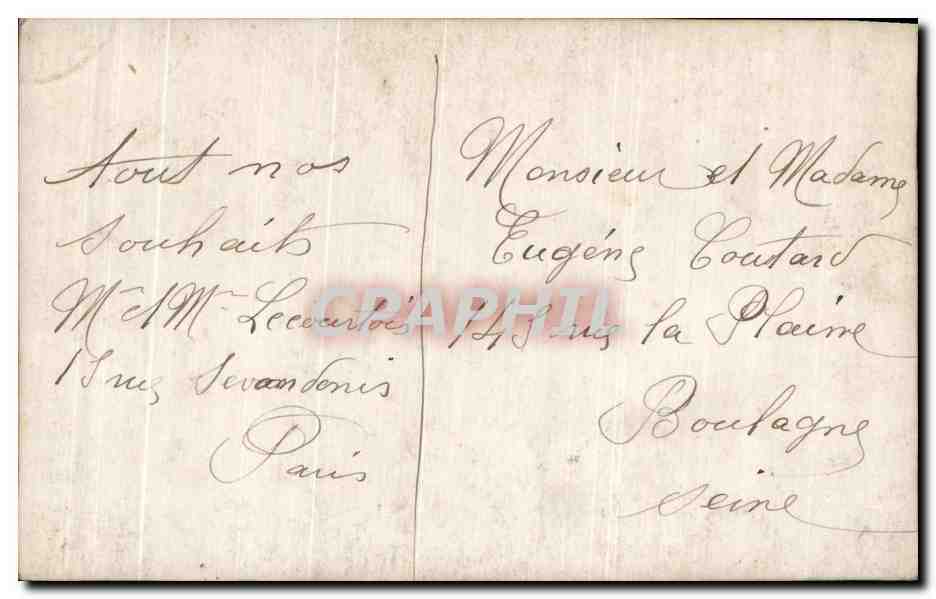 tout nos
souhaits
Mr et Mme Lecourtois
15 rue Servandonis
Paris
Monsieur et Madame
Eugéne Coutard
145 rue la Plaine
Boulogne
seine
CPAPHIL